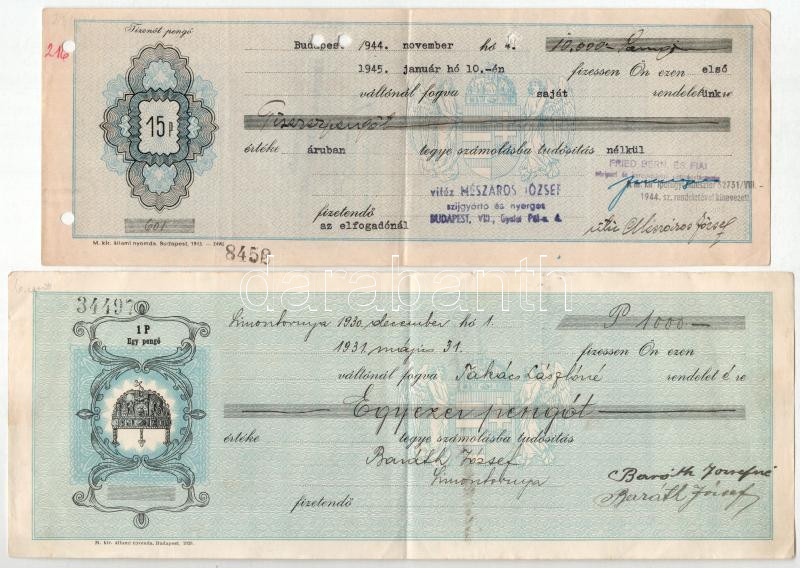 Tizenöt pengő
216
Budapest 1944. november hó 4. 10,000 Pengő
1945. január hó 10.-én fizessen Ön ezen első
váltónál fogva saját rendeletünkre
15 P
Tízezerpengőt
értéke áruban tegye számolásba tudósítás nélkül
FRIED BERN. ÉS FIAI
vitéz MÉSZÁROS JÓZSEF
szijgyártó és nyerges
BUDAPEST, VIII., Gyulai Pál-u. 4.
52731/VIII.
1944. sz. rendeletével kinevezett
601
fizetendő
az elfogadónál
vitéz Mészáros József
M. kir. állami nyomda, Budapest, 1943.
8458
darabanth
34497
1 P
Egy pengő
Simontornya 1930. december hó 1. P 1000
1931. május 31. fizessen Ön ezen
váltónál fogva Takács Lászlóné rendeleté re
Egyezer pengőt
értéke tegye számolásba tudósítás
Baráth József
Simontornya
Baráth Józsefné
Baráth József
fizetendő
M. kir. állami nyomda, Budapest,